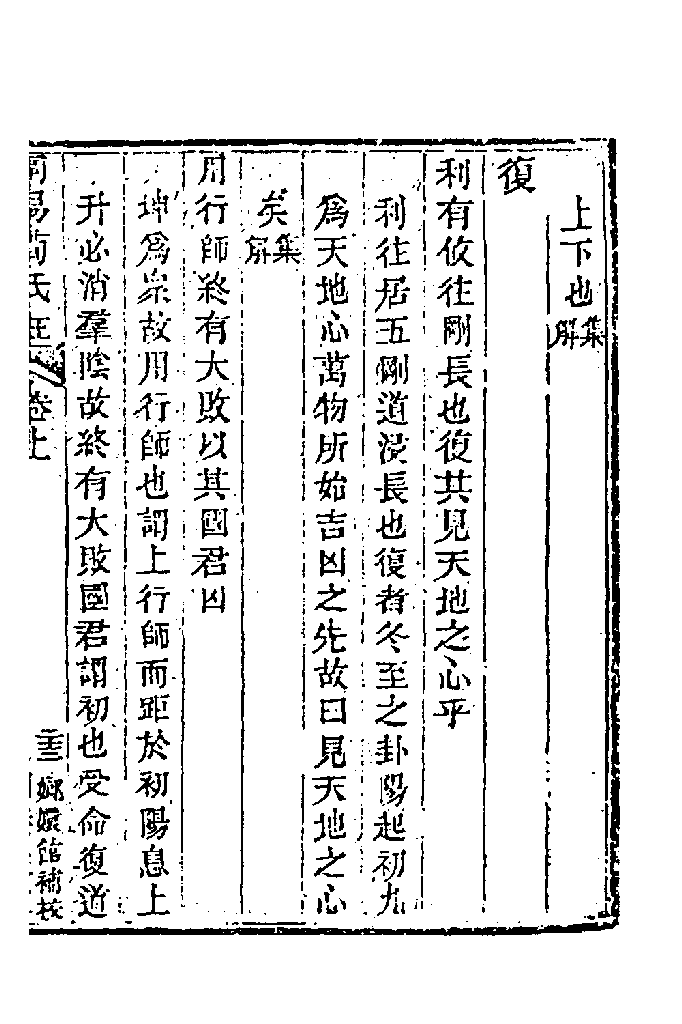 上下也集解
復
利有攸往剛長也復其見天地之心乎
利往居五剛道浸長也復者冬至之卦陽起初九
爲天地心萬物所始吉凶之先故曰見天地之心
矣集解
用行師終有大敗以其國君凶
坤爲眾故用行師也謂上行師而距於初陽息上
升必消羣陰故終有大敗國君謂初也受命復道
周易荀氏注 卷上
三 嫏嬛館補校